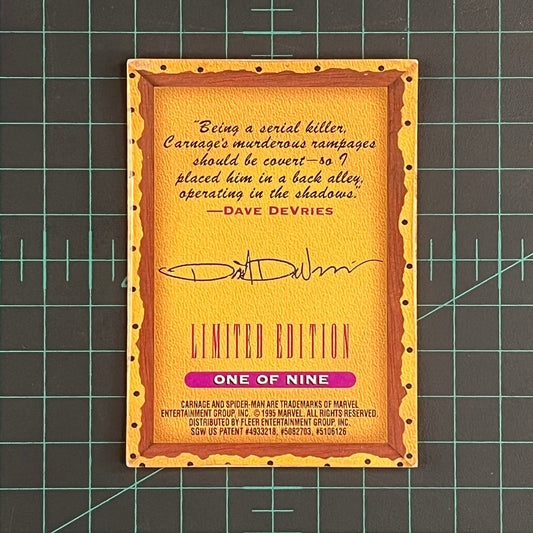 "Being a serial killer,
Carnage's murderous rampages
should be covert—so I
placed him in a back alley,
operating in the shadows."
—DAVE DEVRIES
Dave DeVries
LIMITED EDITION
ONE OF NINE
CARNAGE AND SPIDER-MAN ARE TRADEMARKS OF MARVEL
ENTERTAINMENT GROUP, INC. © 1995 MARVEL. ALL RIGHTS RESERVED.
DISTRIBUTED BY FLEER ENTERTAINMENT GROUP, INC.
SGW US PATENT #4933218, #5082703, #5106126